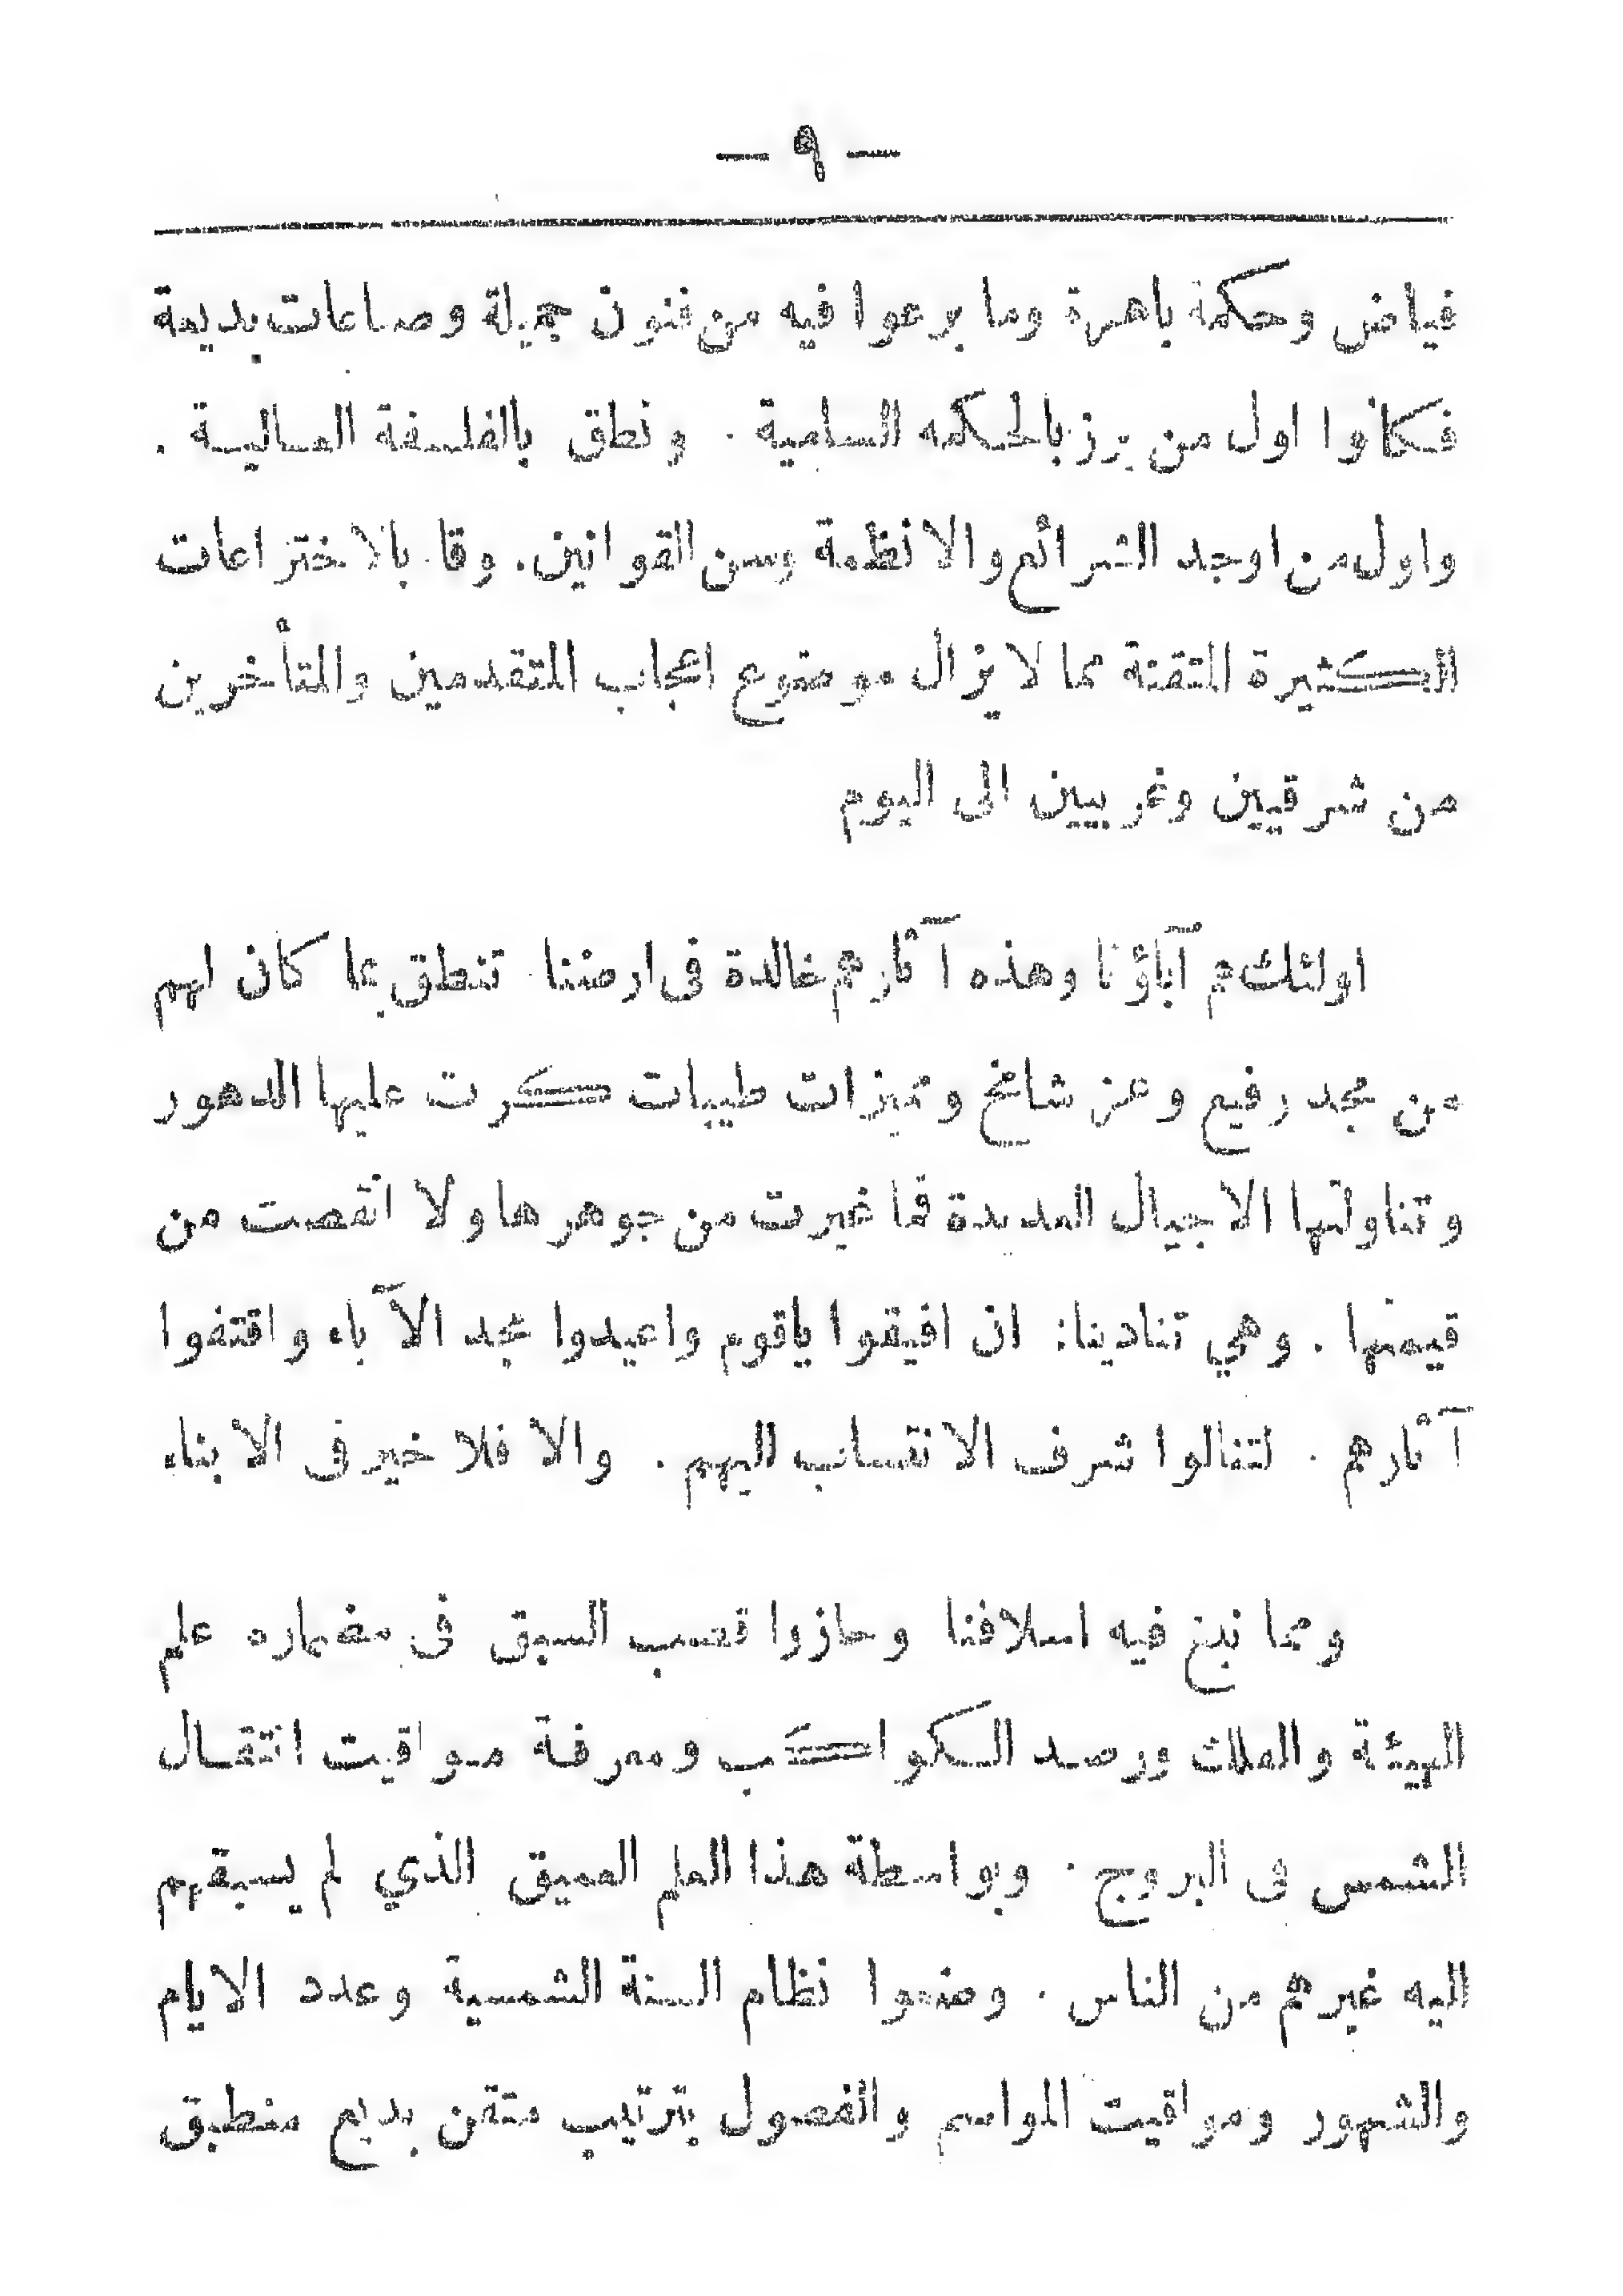 — ٩ —
فياض وحكمة باهرة وما برعوا فيه من فنون جميلة وصناعات بديعة
فكانوا اول من برز بالحكمه السامية . ونطق بالفلسفة العالية .
واول من اوجد الشرائع والانظمة وسن القوانين. وقا بالاختراعات
الكثيرة المتقنة مما لا يزال موضوع اعجاب المتقدمين والمتأخرين
من شرقيين وغربيين الى اليوم
اولئك هم آباؤنا وهذه آثارهم خالدة فى ارضنا تنطق بما كان لهم
من مجد رفيع وعز شامخ ومميزات طيبات كرت عليها الدهور
وتناولتها الاجيال العديدة فما غيرت من جوهرها ولا انقصت من
قيمتها . وهي تنادينا: ان افيقوا ياقوم واعيدوا مجد الآباء واقتفوا
آثارهم . لتنالوا شرف الانتساب اليهم . والا فلا خير فى الابناء
ومما نبغ فيه اسلافنا وحازوا قصب السبق فى مضماره علم
الهيئة والفلك ورصد الكواكب ومعرفة مواقيت انتقال
الشمس فى البروج . وبواسطة هذا العلم العميق الذي لم يسبقهم
اليه غيرهم من الناس . وضعوا نظام السنة الشمسية وعدد الايام
والشهور ومواقيت المواسم والفصول بترتيب متقن بديع منطبق